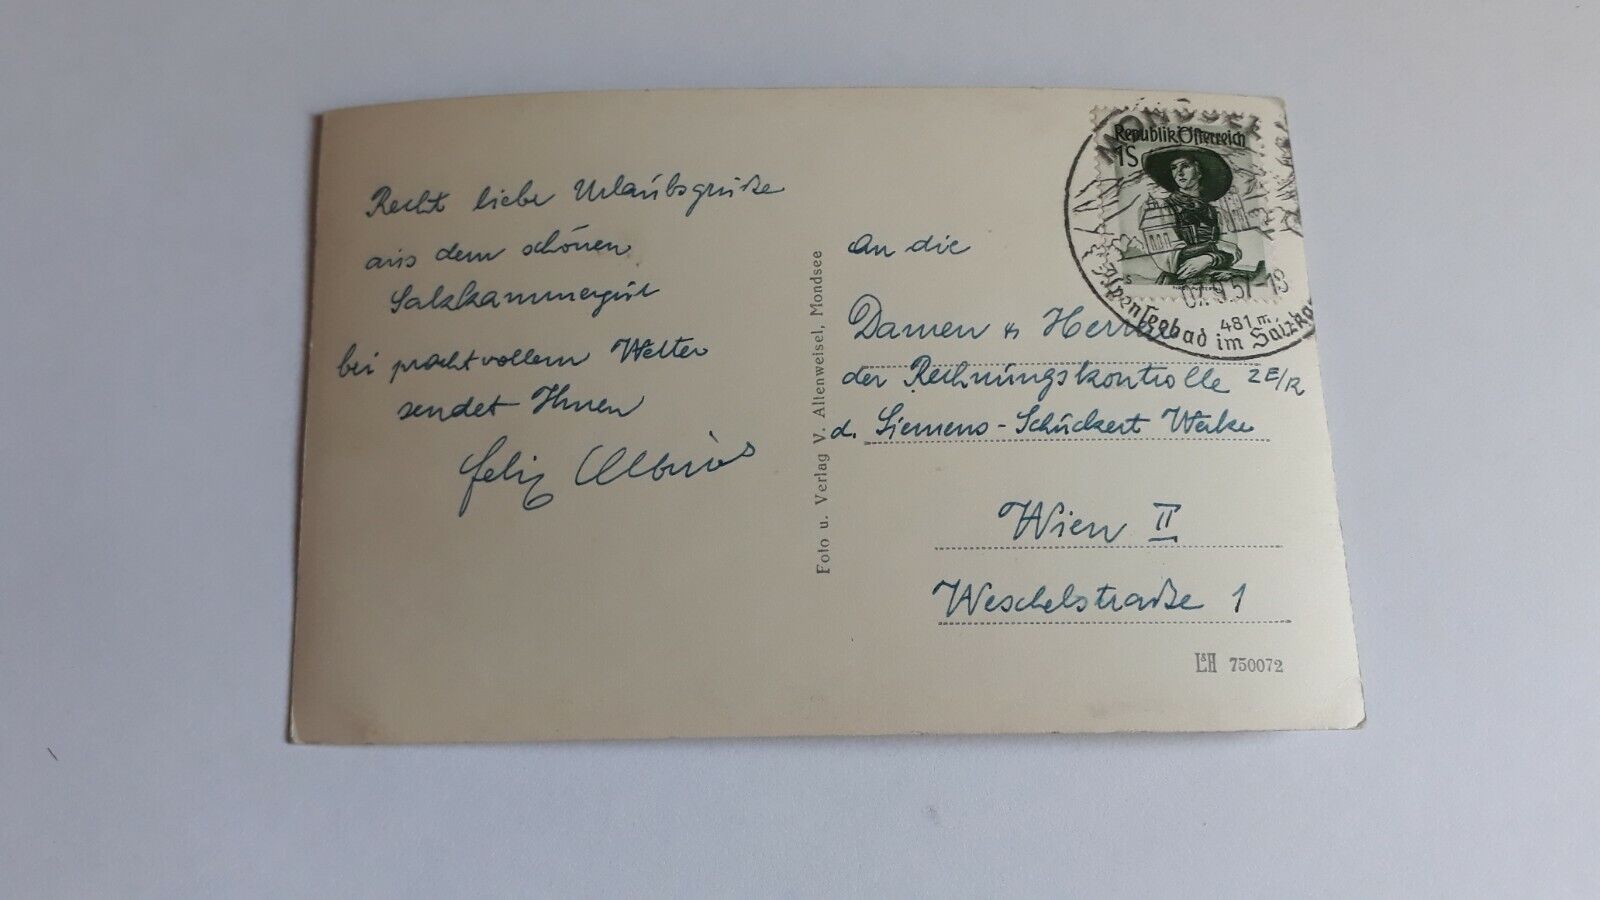 Recht liebe Urlaubsgrüße
aus dem schönen
Salzkammergut
bei prachtvollem Wetter
sendet Ihnen
Felix
Foto u. Verlag V. Altenweisel, Mondsee
MONDSEE
Republik Österreich
1S
07.9.57-18
481 m.
Alpenseebad im Salzka
An die
Damen u Herren
der Rechnungskontrolle ZE/R
d. Siemens-Schuckert Werke
Wien II
Weschelstraße 1
L&H 750072